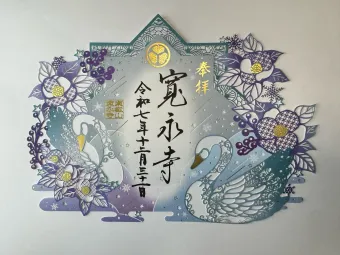 奉拝
寛永寺
令和七年十二月三十一日